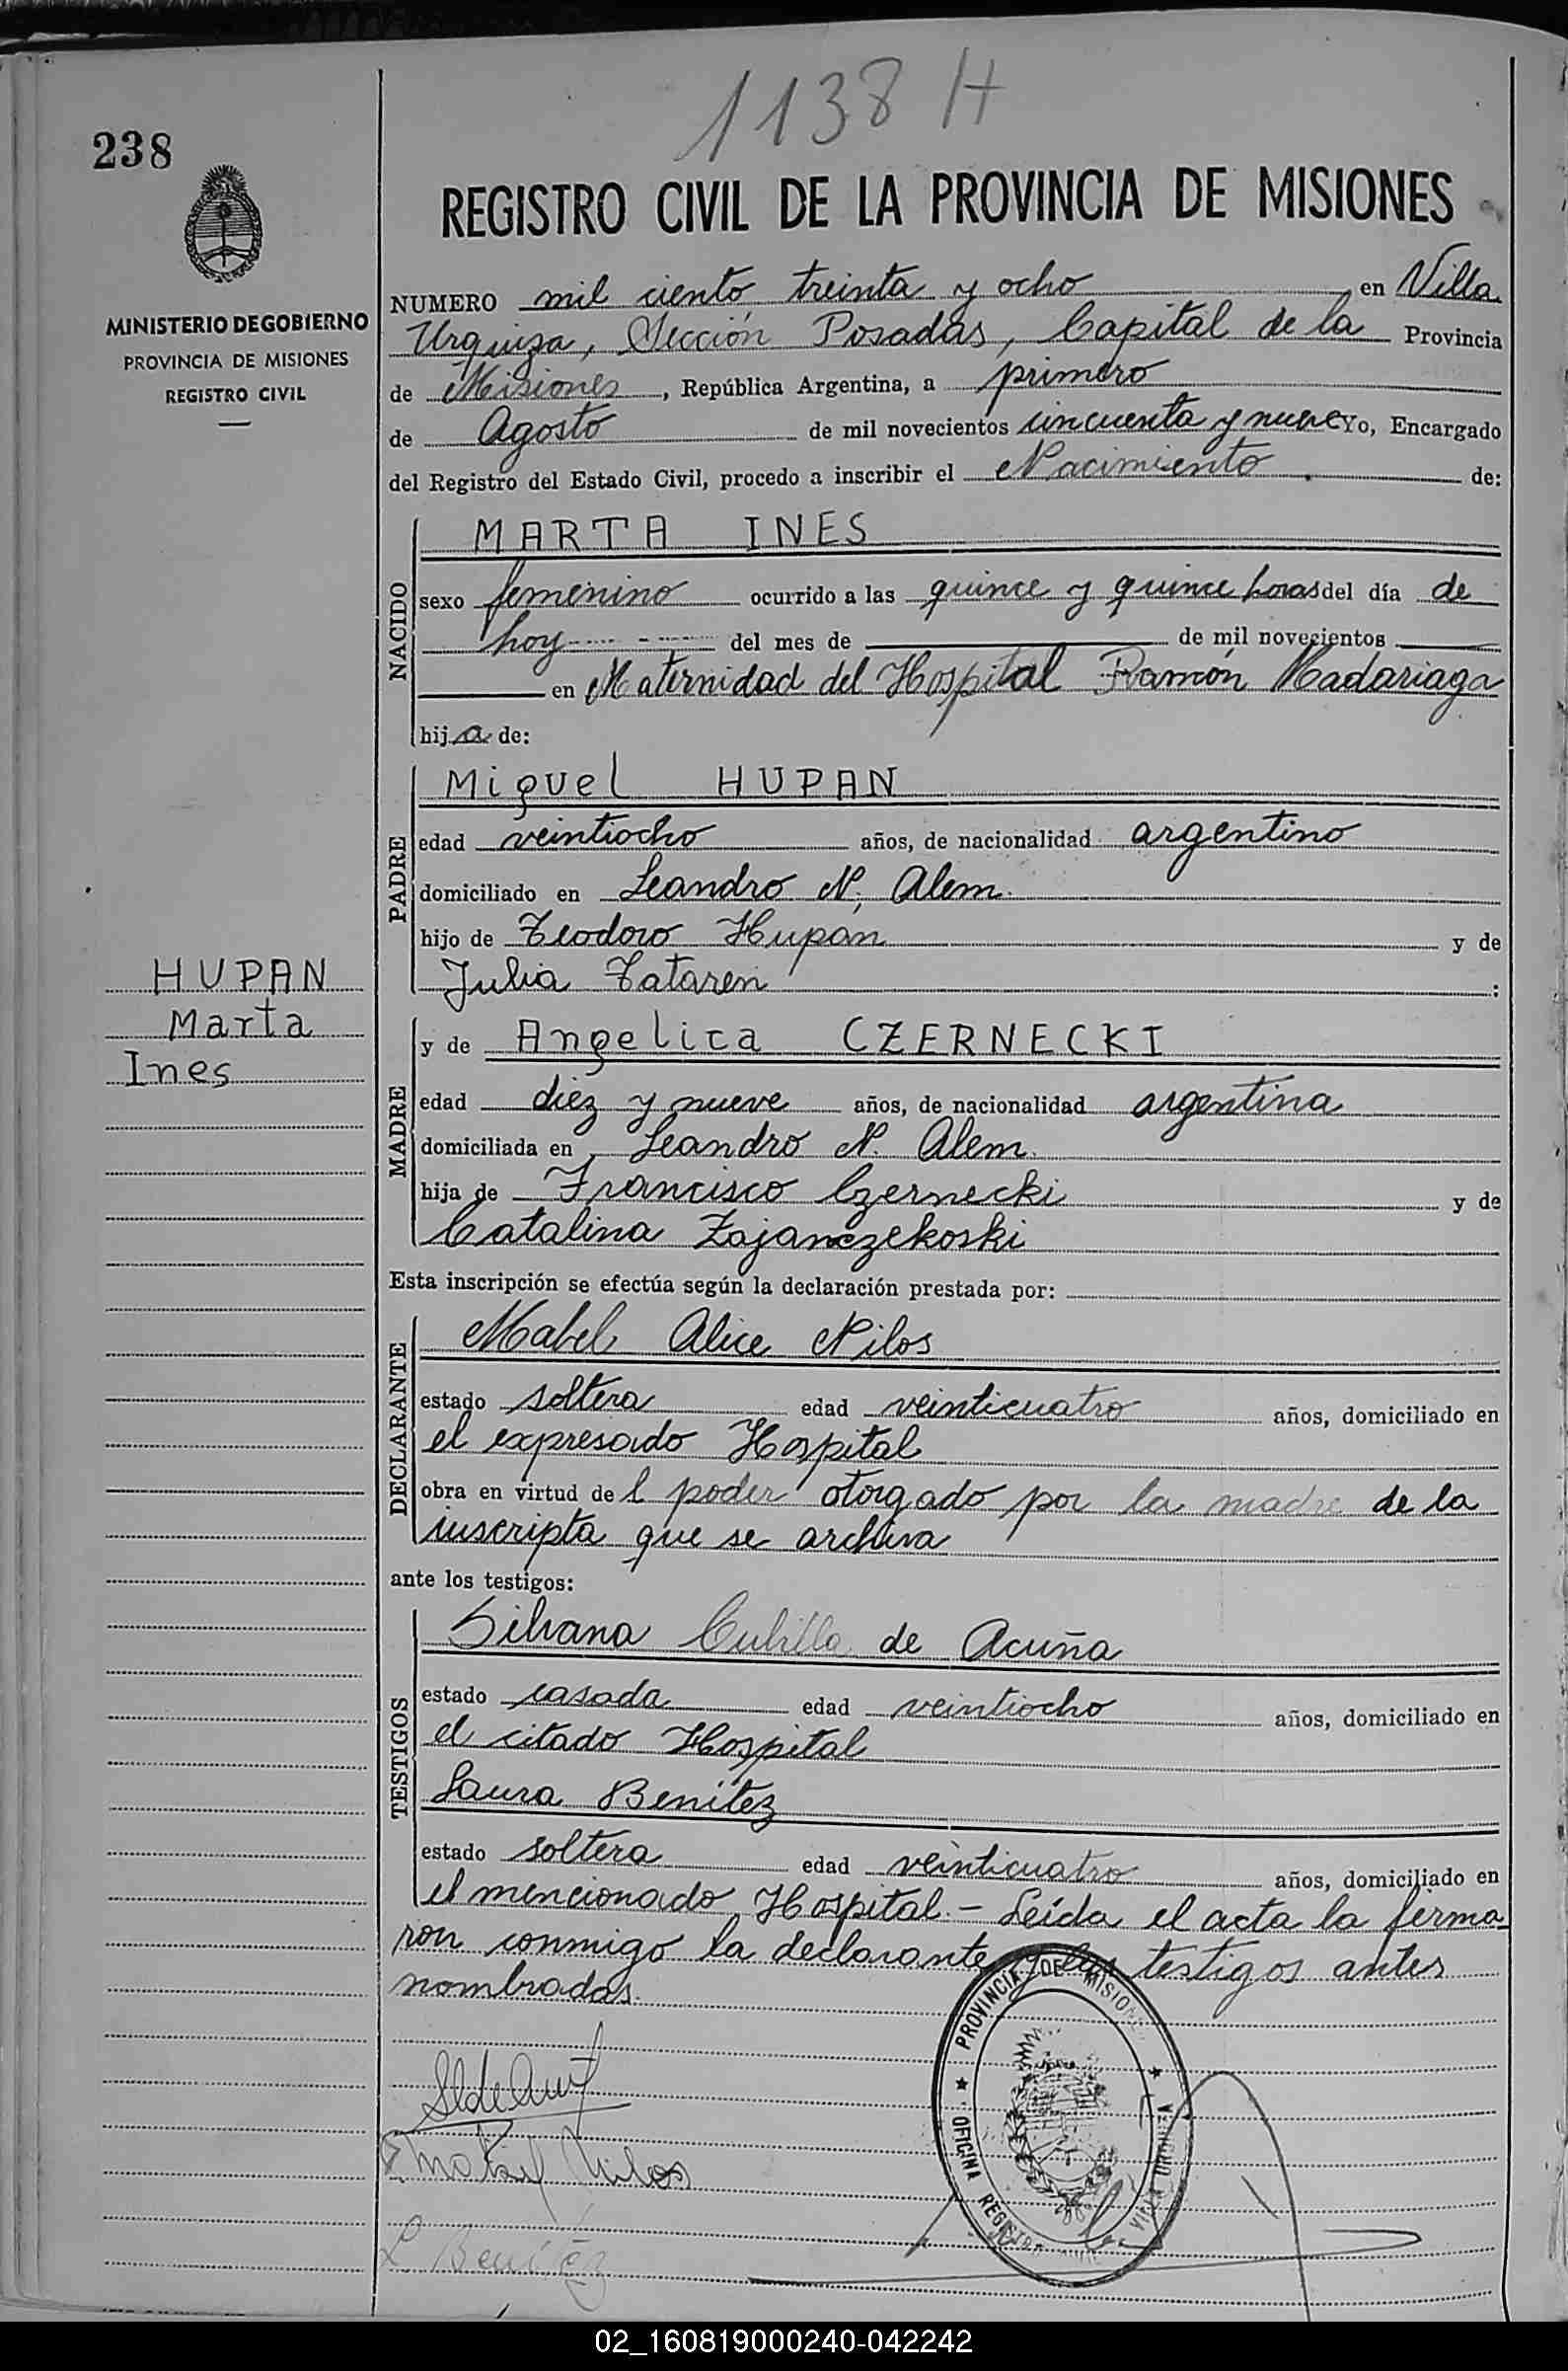 1138 H
238
REGISTRO CIVIL DE LA PROVINCIA DE MISIONES
MINISTERIO DE GOBIERNO
PROVINCIA DE MISIONES
REGISTRO CIVIL
NUMERO mil ciento treinta y ocho en Villa
Urquiza, Sección Posadas, Capital de la Provincia
de Misiones, República Argentina, a primero
de Agosto de mil novecientos cincuenta y nueve Yo, Encargado
del Registro del Estado Civil, procedo a inscribir el Nacimiento de:
NACIDO
MARTA INES
sexo femenino ocurrido a las quince y quince horas del día de
hoy del mes de de mil novecientos
en Maternidad del Hospital Ramón Madariaga
hija de:
PADRE
Miguel HUPAN
edad veintiocho años, de nacionalidad argentino
domiciliado en Leandro N. Alem.
hijo de Teodoro Hupan y de
Julia Tataren :
HUPAN
Marta
Ines
MADRE
y de Angelica CZERNECKI
edad diez y nueve años, de nacionalidad argentina
domiciliada en Leandro N. Alem.
hija de Francisco Czernecki y de
Catalina Zajanczekoski
Esta inscripción se efectúa según la declaración prestada por:
DECLARANTE
Mabel Alice Nilos
estado soltera edad veinticuatro años, domiciliado en
el expresado Hospital
obra en virtud del poder otorgado por la madre de la
inscripta que se archiva
ante los testigos:
TESTIGOS
Silvana de Acuña
estado casada edad veintiocho años, domiciliado en
el citado Hospital
Laura Benítez
estado soltera edad veinticuatro años, domiciliado en
el mencionado Hospital.- Leída el acta la firma
ron conmigo la declarante y los testigos antes
nombradas.
PROVINCIA DE MISIONES
OFICINA REGISTRO CIVIL
VILLA URQUIZA
Mabel Nilos
L Benítez
02_160819000240-042242